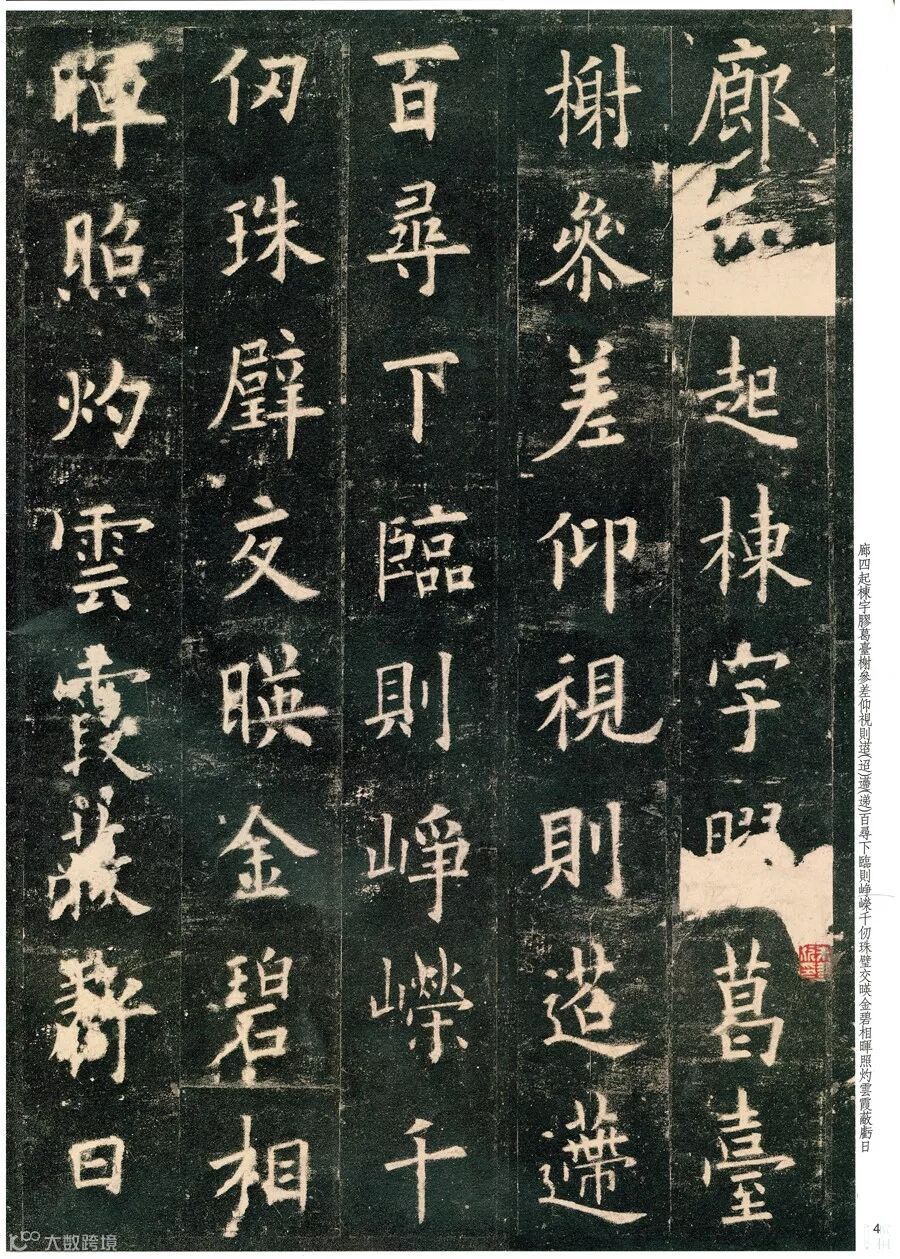 廊起棟宇葛臺
榭參差仰視則迢遰
百尋下臨則崢嶸千
仞珠璧交暎金碧相
暉照灼雲霞蔽虧日
廊四起棟宇膠葛臺榭參差仰視則(迢)遰(递)百尋下臨則崢嶸千仞珠璧交暎金碧相暉照灼雲霞蔽虧日
4
大数跨境